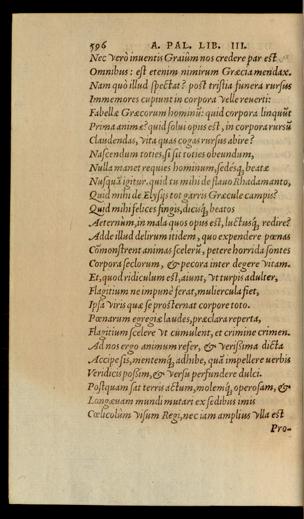 596 A. PAL. LIB. III.
Nec verò inuentis Graiûm nos credere par est
Omnibus: est etenim nimirum Græcia mendax.
Nam quò illud spectat? post tristia funera rursus
Immemores cupiunt in corpora velle reuerti:
Fabellæ Græcorum hominũ: quid corpora linquũt
Prima animæ? quid solui opus est, in corpora rursũ
Claudendas, vita quas cogas rursus abire?
Nascendum toties, si sit toties obeundum,
Nulla manet requies hominum, sedésq; beatæ
Nusquã igitur. quid tu mihi de flauo Rhadamanto,
Quid mihi de Elysijs tot garris Græcule campis?
Quid mihi felices fingis, dicúsq; beatos
Aeternium, in mala quos opus est, luctusq; redire?
Adde illud delirum itidem, quo expendere pœnas
Cõmonstrent animas scelerũ, petere horrida sontes
Corpora seclorum, & pecora inter degere vitam.
Et, quod ridiculum est, aiunt, vt turpis adulter,
Flagitium ne impunè ferat, muliercula fiet,
Ipsa viris quæ se prosternat corpore toto.
Pœnarum egregiæ laudes, præclara reperta,
Flagitium scelere vt cumulent, et crimine crimen.
Ad nos ergo animum refer, & verissima dicta
Accipe sis, mentemq; adhibe, quã impellere verbis
Veridicis possim, & versu perfundere dulci.
Postquam sat terris actum, molemq; operosam, &
Longæuam mundi mutari ex sedibus imis
Cœlicolûm visum Regi, nec iam amplius vlla est
Pro-